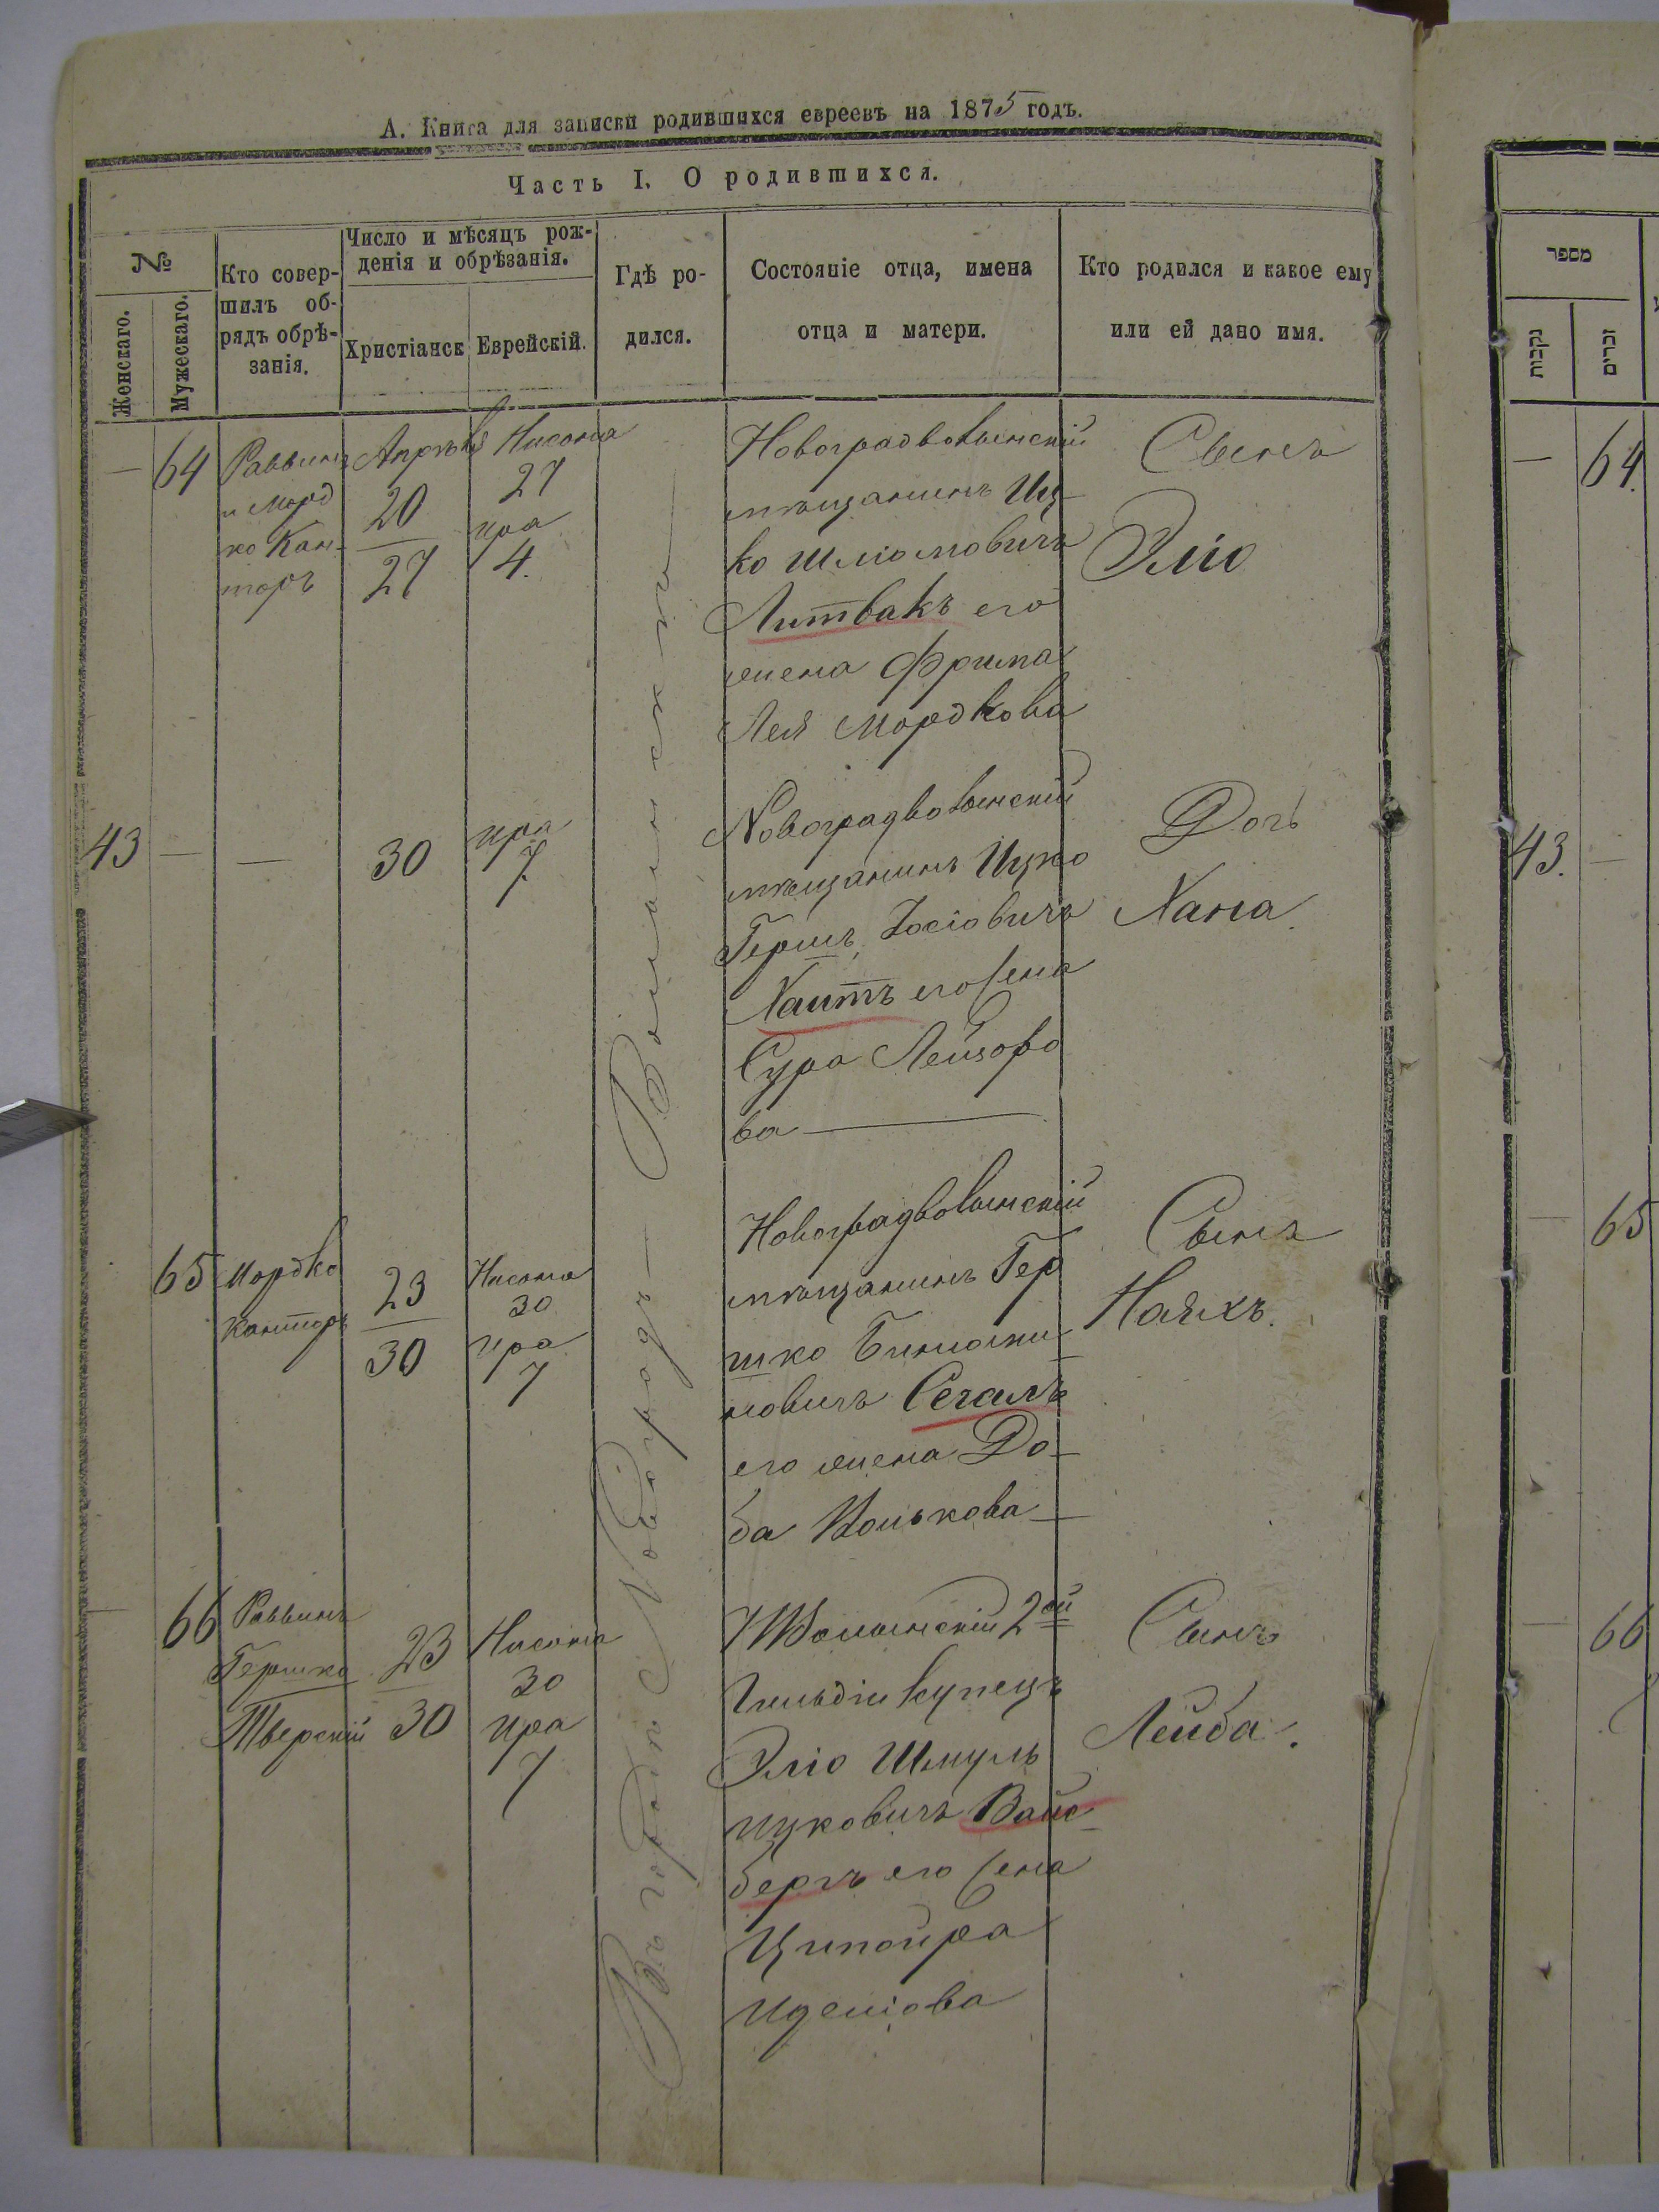 А. Книга для записки родившихся евреевъ на 1875 годъ.
Часть I. О родившихся.
№
Женскаго.
Мужескаго.
Кто совер-
шилъ об-
рядъ обрѣ-
занія.
Число и мѣсяцъ рож-
денія и обрѣзанія.
Христіанск
Еврейскій.
Гдѣ ро-
дился.
Состояніе отца, имена
отца и матери.
Кто родился и какое ему
или ей дано имя.
Въ городѣ Новоградъ — Волынскѣ
— 64
Раввинъ
иМорд
ко Кан-
торъ
Апрѣль
20
27
Нисона
27
ира
4.
Новоградволынскій
мѣщанинъ Иц-
ко Шліомовичъ
Литвакъ его
жена Фрима
Лея Мордкова
Сынъ
Эліо
43 — —
30
ира
7.
Новоградволынскій
мѣщанинъ Ицко
Гершъ Іосіовичъ
Хаитъ его жена
Сура Лейзоро
ва
Дочь
Хана.
65
Мордко
Канторъ
23
30
Нисона
30
ира
7
Новоградволынскій
мѣщанинъ Гер
шко
новичъ Сегалъ
его жена До-
ба Волькова
Сынъ
Нояхъ.
— 66
Раввинъ
Гершко
Тверскій
23
30
Нисона
30
ира
7
НВолынскій 2ой
Гильдіи купецъ
Эліо Шмуль
Ицковичъ Вайс-
бергъ его жена
Ципойра
Сынъ
Лейба.
מספר
נקבות
זכרים
— 64.
43. —
— 65
— 66